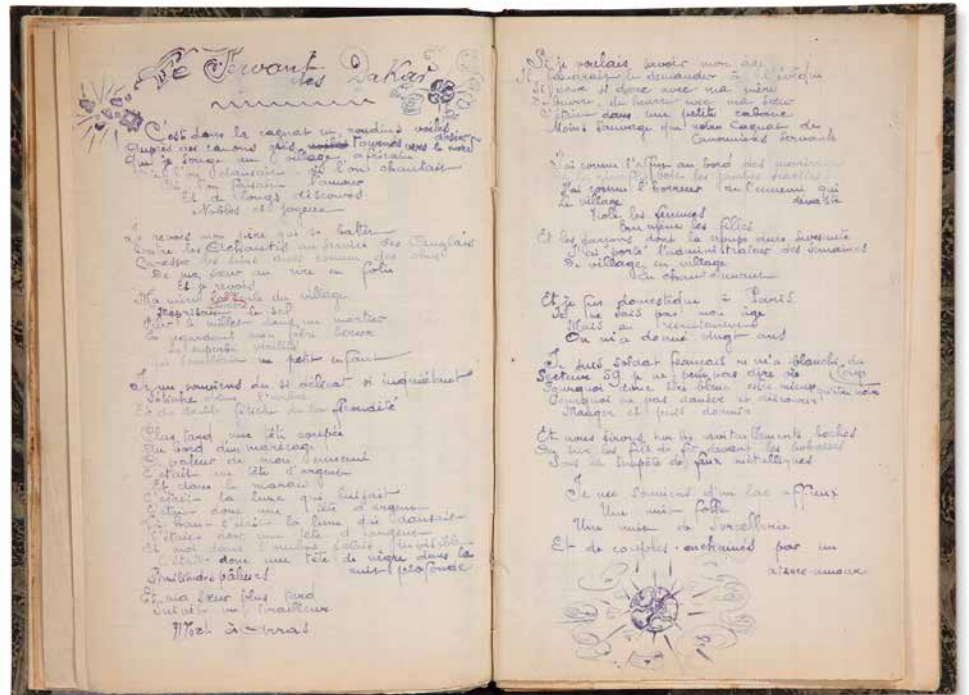 Le Servant
des Dakar
C'est dans la cagnat en rondins voilés
d'osier
Auprès des canons gris tournés vers le nord
Que je songe au village africain
Où l'on dansait où l'on chantait
Où l'on faisait l'amour
Et de longs discours
Nobles et joyeux
Je revois mon père qui se battit
Contre les Achantis au service des Anglais
de ma sœur au rire en folie
Et je revois
Ma mère du village
le sel
le millet dans un mortier
un petit enfant
Je me souviens du si délicat si inquiétant
Fétiche dans l'arbre
Et du double fétiche de la fécondité
Plus tard une tête coupée
Au bord d'un marécage
O pâleur de mon ennemi
C'était une tête d'argent
Et dans le marais
C'était la lune qui luisait
C'était donc une tête d'argent
Là-haut c'était la lune qui dansait
C'était donc une tête d'argent
Et moi dans l'antre j'étais invisible
C'était donc une tête de nègre dans la
nuit profonde
Similitudes pâleurs
Et ma sœur plus tard
Suivit un tirailleur
Mort à Arras
Si je voulais savoir mon âge
Il faudrait le demander à l'évêque
Si doux si doux avec ma mère
De beurre de beurre avec ma sœur
C'était dans une petite cabane
Moins sauvage que notre cagnat de
Canonniers Servants
J'ai connu l'affût au bord des marécages
J'ai connu l'horreur de l'ennemi qui
dévaste
Le village
Viole les femmes
Emmène les filles
Et les garçons dont la croupe dure sursaute
J'ai porté l'administrateur des semaines
De village en village
En chantonnant
Et je fus domestique à Paris
Je ne sais pas mon âge
Mais au recrutement
On m'a donné vingt ans
Je suis soldat français on m'a blanchi du
coup
Secteur 59 je ne peux pas dire où
Pourquoi donc être blanc est-ce mieux
qu'être noir
Pourquoi ne pas danser et discourir
Manger et puis dormir
Et nous tirons sur les ravitaillements boches
Ou sur les fils de fer devant les bobosses
Sous la tempête de feux métalliques
Je me souviens d'un lac affreux
Une nuit folle
Une nuit de Sorcellerie
Et de couples enchaînés par un
atroce amour